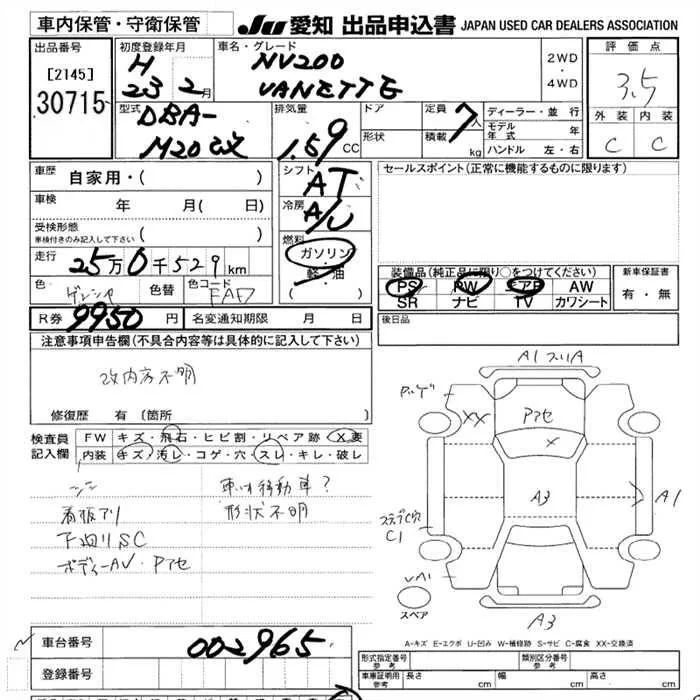 車内保管・守衛保管
JU 愛知 出品申込書 JAPAN USED CAR DEALERS ASSOCIATION
出品番号
[2145]
30715
初度登録年月
H
23 2月
車名・グレード
NV200
VANETTE
2WD
・
4WD
評価点
3.5
外装 内装
C C
型式
DBA-
M20改
排気量
1.59 CC
ドア
形状
定員 7人
積載 kg
ディーラー・並行
モデル年式 年
ハンドル 左・右
車歴 自家用・( )
車検 年 月( 日)
受検形態
車検付きのみ記入して下さい
走行 25万0千529km
色 色替 色コード
R券 9950円 名変通知期限 月 日
シフト AT
冷房 A/C
燃料
ガソリン
軽・油
( )
セールスポイント(正常に機能するものに限ります)
装備品(純正品に限り○をつけてください)
PS PW エアB AW
SR ナビ TV カワシート
新車保証書
有・無
後日品
注意事項申告欄(不具合内容等は具体的に記入して下さい)
改内容不明
修復歴 有(箇所 )
検査員
記入欄
FW キズ・飛石・ヒビ割・リペア跡・X要
内装 キズ・汚レ・コゲ・穴・スレ・キレ・破レ
看板アリ
下廻りSC
ボディーAU・Pアセ
車いす移動車?
形状不明
A1
XX
Pアセ
X
A3
A1
C1
A3
スペア
A-キズ E-エクボ U-凹み W-補修跡 S-サビ C-腐食 XX-交換済
車台番号 002965
登録番号
形式指定番号
参考
類別区分番号
参考
車庫証明用
参考
長さ cm 幅 cm 高さ cm